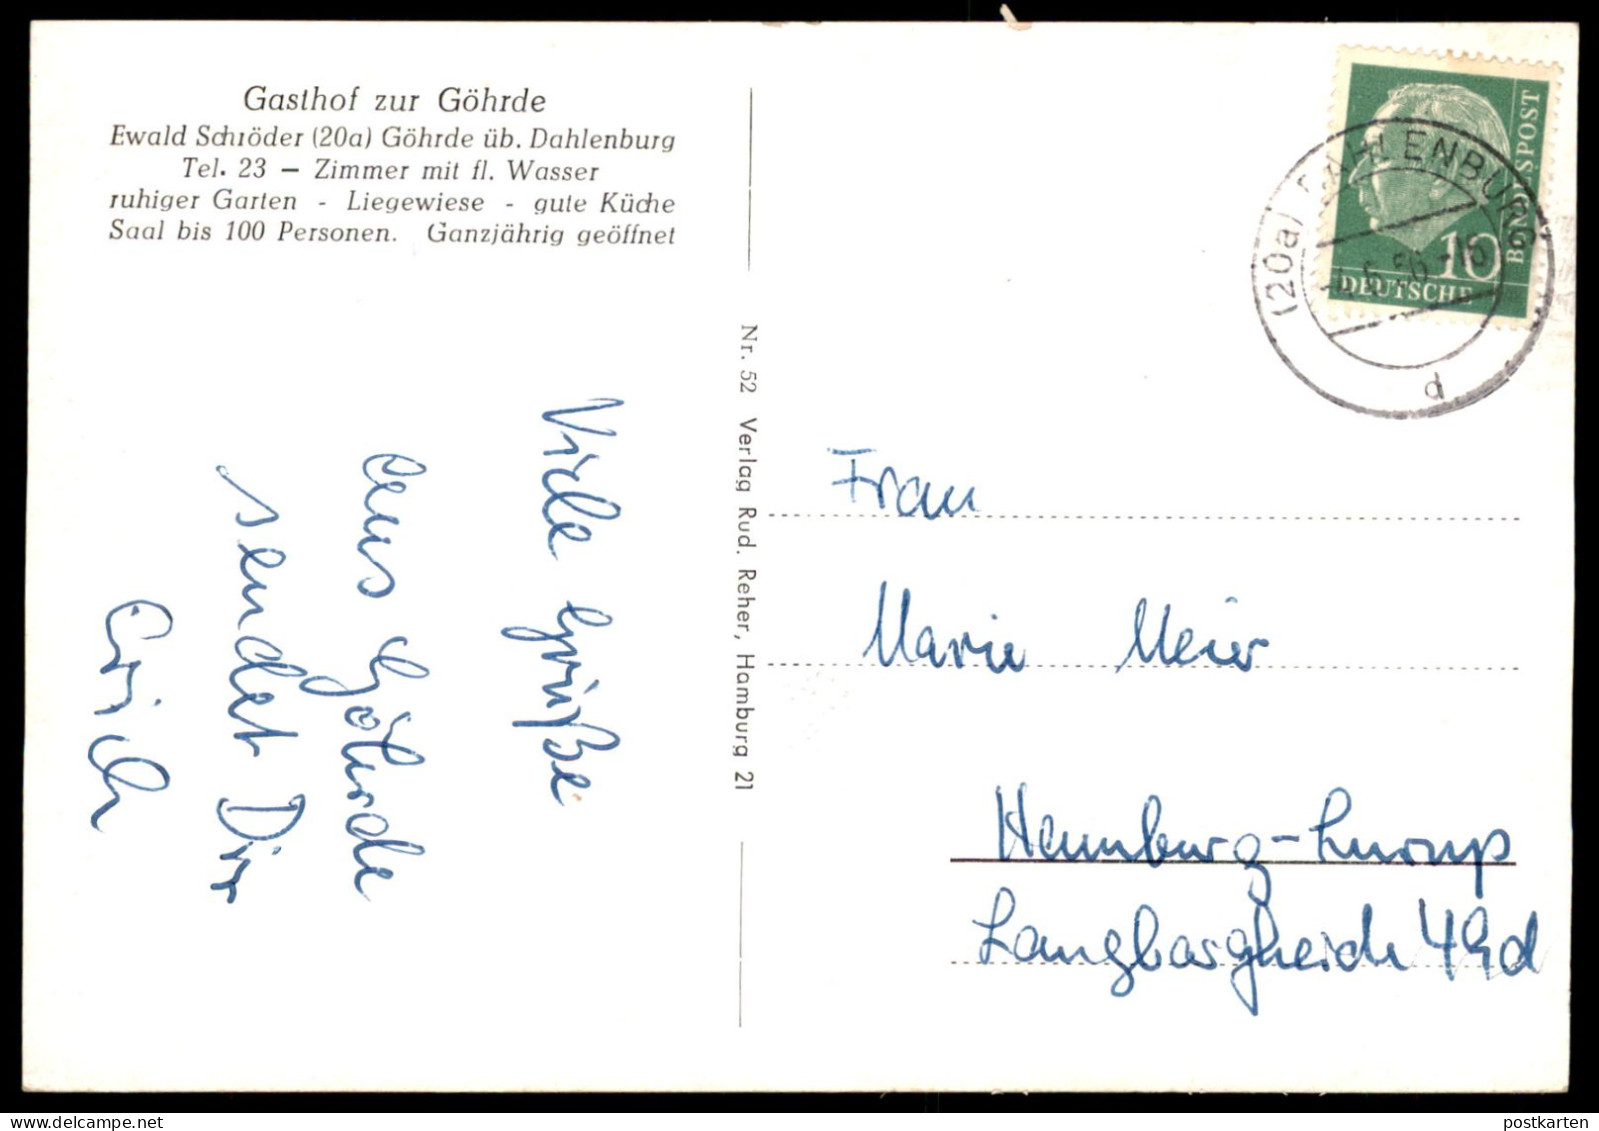 Gasthof zur Göhrde
Ewald Schröder (20a) Göhrde üb. Dahlenburg
Tel. 23 – Zimmer mit fl. Wasser
ruhiger Garten - Liegewiese - gute Küche
Saal bis 100 Personen. Ganzjährig geöffnet
Viele Grüße
aus Göhrde
sendet Dir
Erich
Nr. 52 Verlag Rud. Reher, Hamburg 21
DEUTSCHE
BUNDESPOST
10
(20a) DAHLENBURG
6.56.-18
d
Frau
Marie Meier
Hamburg-Lurup
Langbargheide 49d
postkarten